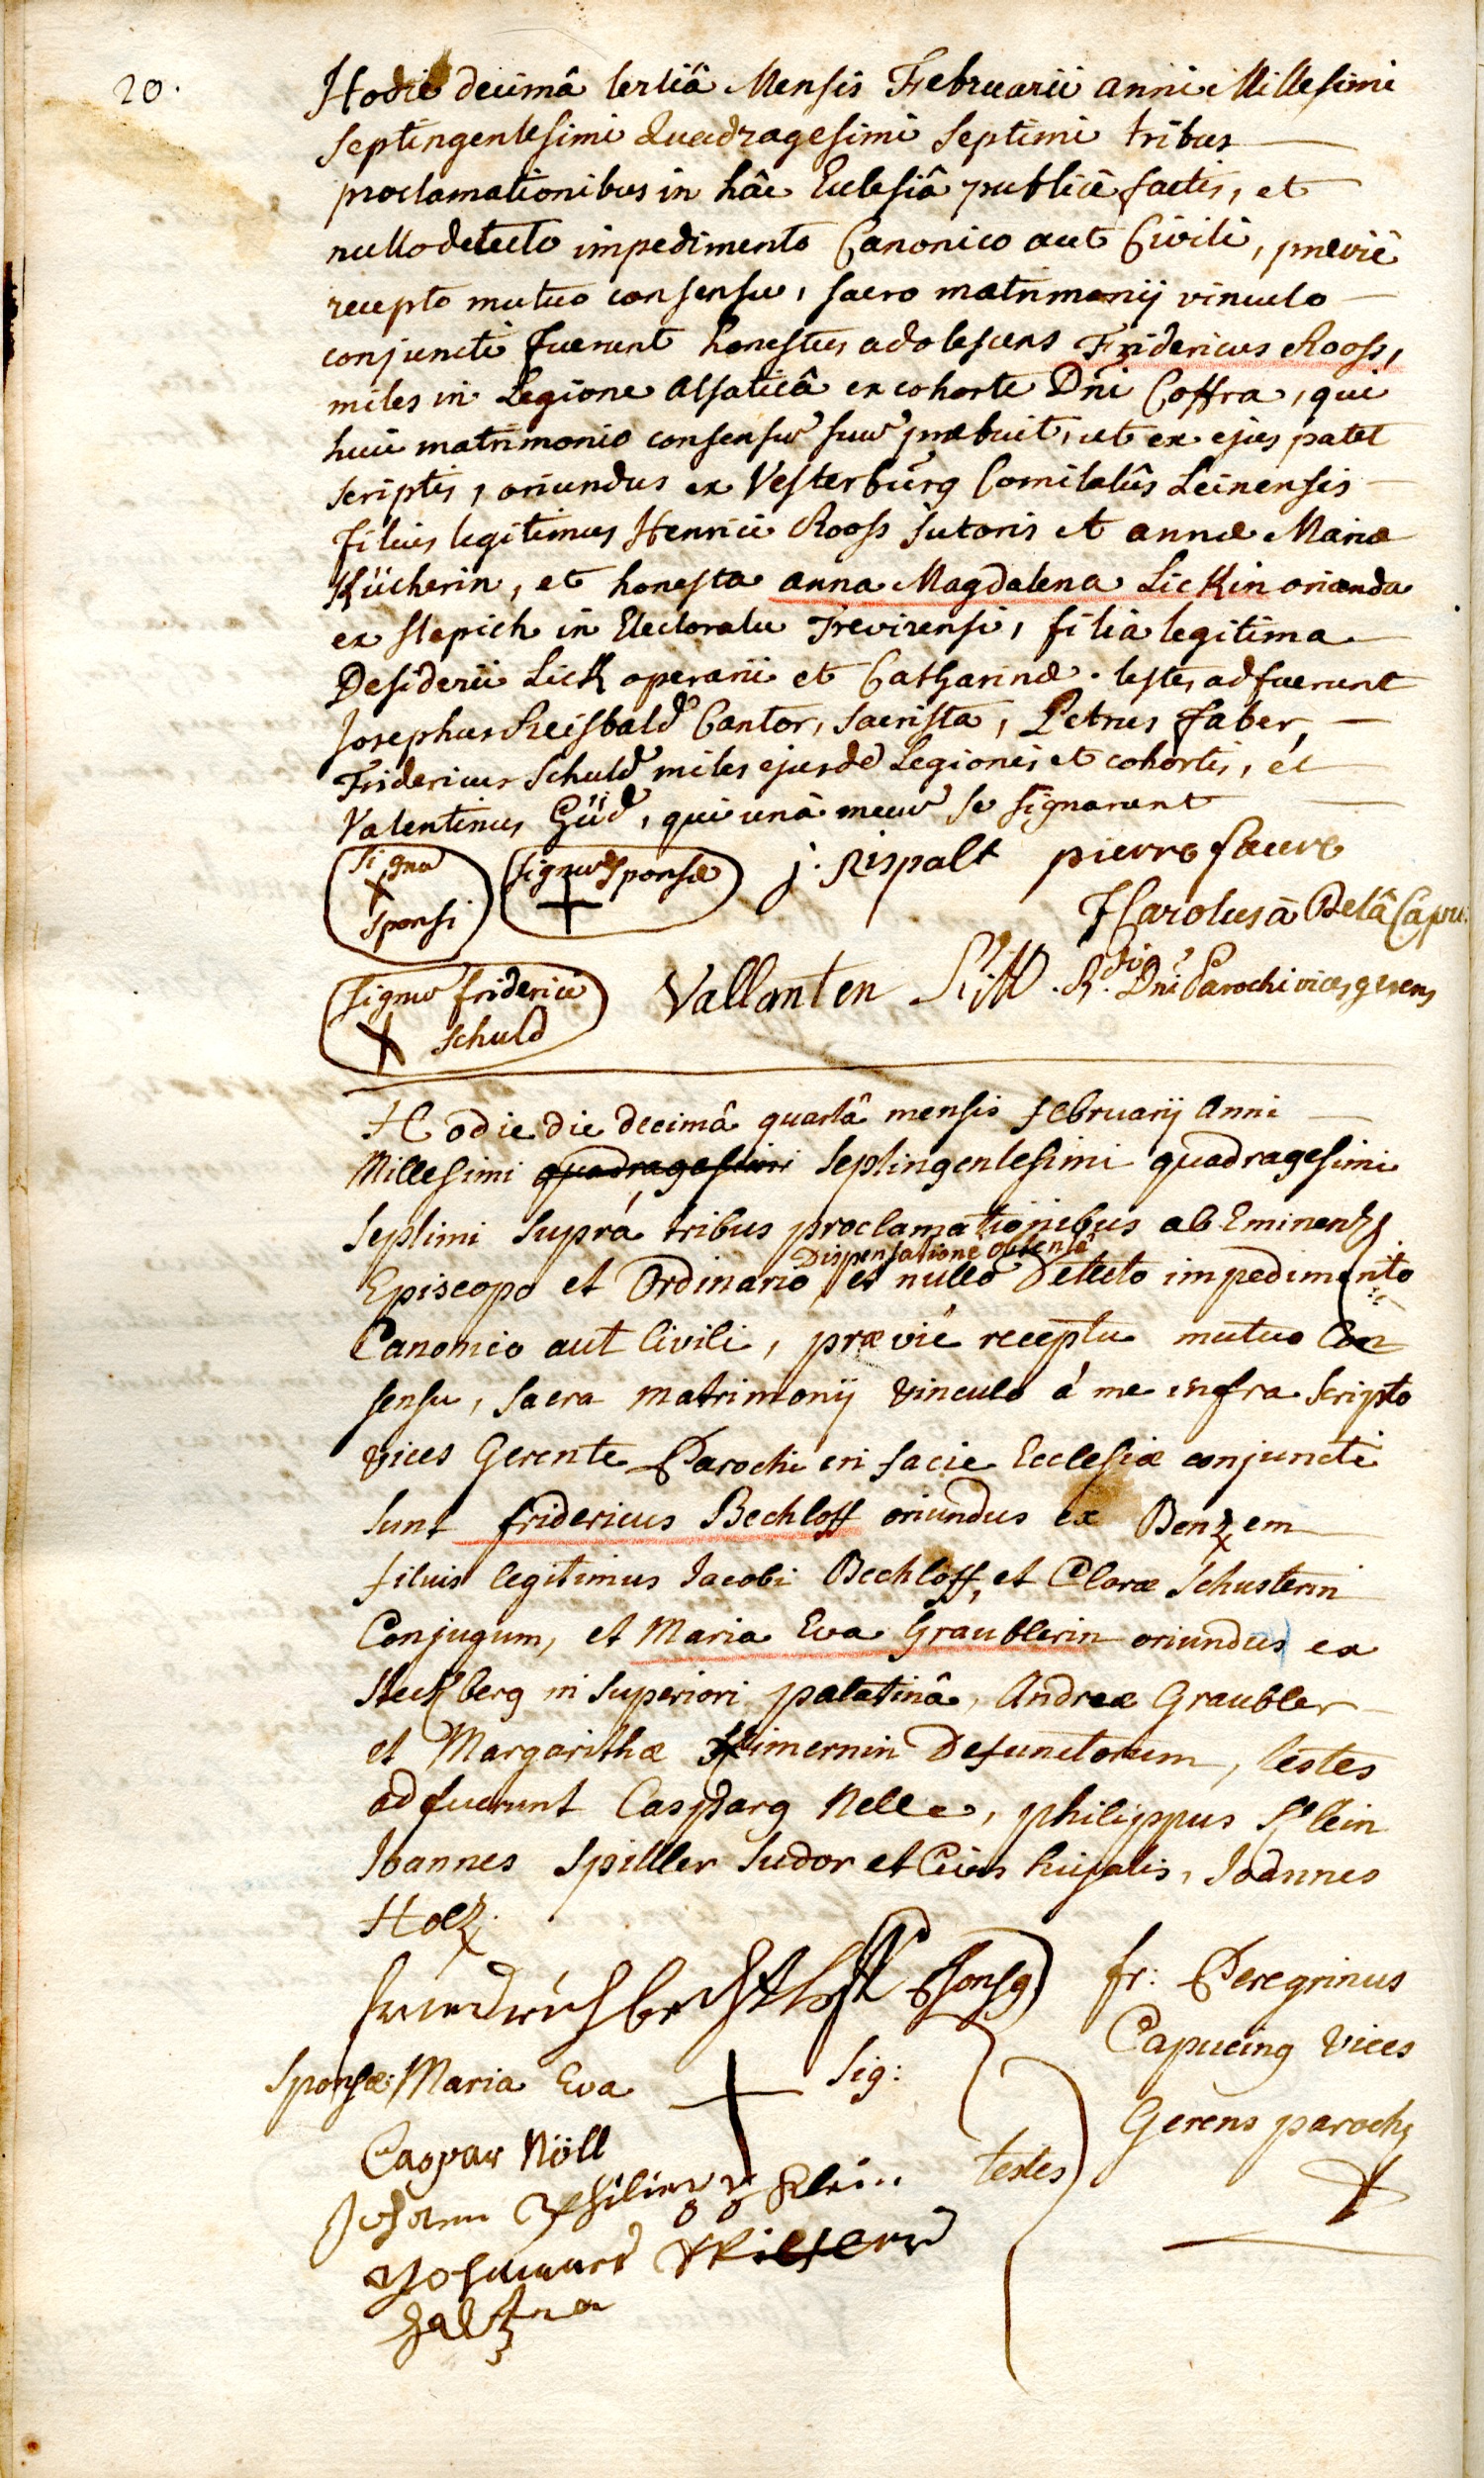 20.
Hodie decimâ tertiâ Mensis Februarii anni Millesimi
septingentesimi Quadragesimi septimi tribus
proclamationibus in hâc Ecclesiâ publicè factis, et
nullo detecto impedimento Canonico aut Civili, prævie
recepto mutuo consensu, sacro matrimonij vinculo
conjuncti fuerunt honestus adolescens Fridericus Rooss,
miles in Legione Alsaticâ ex cohorte Dni Coffra, qui
huic matrimonio consensũ suũ præbuit, ut ex ejus patet
scriptis, oriundus ex Vesterbürg Comitatûs Leinensis
filius legitimus Henrici Rooss sutoris et annæ Mariæ
Kücherin, et honesta anna Magdalena Lickin orianda
ex stepich in Electoratu Trevirensi, filia legitima
Desiderii Lick operarii et Catharinæ. testes adfuerunt
Josephus Reisbald Cantor, sacrista, Petrus faber,
Fridericus Schuld miles ejusdẽ Legionis et cohortis, et
Valentinus Güd, qui unà mecũ se signarunt
Signũ
X
sponsi
Signũ sponsæ
+
j. Rispalt pierre faure
F Carolus à Belâ Capu.
Signũ friderici
X schuld
Vallanten
R.di Dni Parochi vices gerens
Hodie die decimâ quartâ mensis februarij Anni
Millesimi quadragesimi Septingentesimi quadragesimi
Septimi suprá tribus proclamationibus ab Eminentz.
Dispensatione obtentâ
Episcopo et Ordinario, et nullo detecto impedimento
Canonico aut Civili, prævie receptu mutuo Con
sensu, sacra matrimonij vinculo á me infra scripto
vices Gerente Parochi in facie Ecclesiæ conjuncti
sunt fridericus Bechloff oriundus ex Benzem
filius legitimus Jacobi Bechloff, et Claræ Schusterin
Conjugum, et Maria Eva Graublerin oriundus ex
Steckberg in Superiori palatinâ, Andreæ Graubler
et Margarithæ defunctorum, testes
adfuerunt Caspparg Nelle, philippus Klein
Joannes Spilller sudor et Civis hujatis, Joannes
Holz.
friedrich bechtloff sponsg
Sponsæ: Maria Eva + sig:
Caspar Nöll
Johann Philipp Klein testes
fr: Peregrinus
Capucing Vices
Gerens parochj